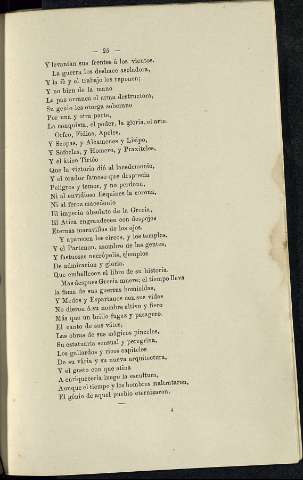 — 25 —
Y levantan sus frentes á los vientos.
La guerra los deshace asoladora,
Y la fé y el trabajo los reponen;
Y no bien de la mano
La paz arranca el arma destructora,
Su genio les otorga soberano
Por una y otra parte,
La conquista, el poder, la gloria, el arte.
Orfeo, Fidias, Apeles,
Y Scopas, y Alcamenes y Lisipo,
Y Sófocles, y Homero, y Praxiteles,
Y el ático Tirteo
Que la victoria dió al lacedemonio,
Y el orador famoso que desprecia
Peligros y temor, y no perdona,
Ni al envidioso Esquines la corona,
Ni al feroz macedonio
El imperio absoluto de la Grecia,
El Atica engrandecen con despojos
Eternas maravillas de los ojos.
Y aparecen los circos, y los templos,
Y el Partenon, asombro de las gentes,
Y fastuosas necrópolis, ejemplos
De admiracion y gloria,
Que embellecen el libro de su historia.
Mas despues Grecia muere; el tiempo lleva
la fama de sus guerras homicidas,
Y Medos y Espartanos con sus vidas
No dieron á su nombre altivo y fiero
Más que un brillo fugaz y pasagero.
El canto de sus vates,
Las obras de sus mágicos pinceles,
Su estatuaria sensual y peregrina,
Los gallardos y ricos capiteles
De su vária y su nueva arquitectura,
Y el gusto con que atina
A enriquecerla luego la escultura,
Aunque el tiempo y los hombres maltrataron,
El génio de aquel pueblo eternizaron.
4